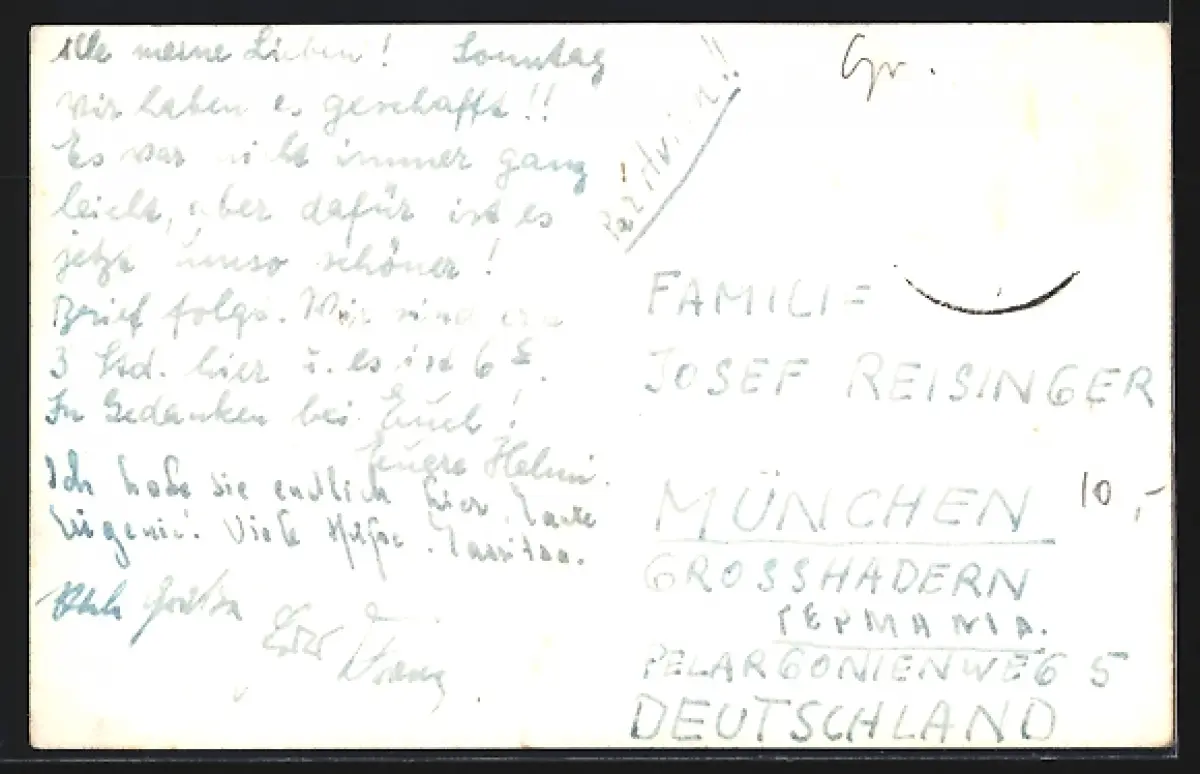 Alle meine Lieben! Sonntag
wir haben es geschafft!!
Es war nicht immer ganz
leicht, aber dafür ist es
jetzt umso schöner!
Brief folgt. Wir sind
3 Std. hier u. es ist 6
In Gedanken bei Euch!
Eugre Helmi.
Ich habe sie endlich hier. Tante
Viele
Par Avion!!
Gr.
FAMILIE
JOSEF REISINGER
MÜNCHEN
10,-
GROSSHADERN
ΓΕΡΜΑΝΙΑ.
PELARGONIENWEG 5
DEUTSCHLAND